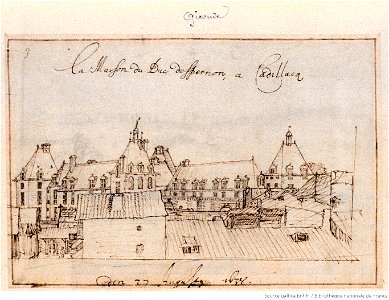 Gironde
3
la Maison du Duc d'espernon, a Cadillacq
den 27
Source gallica.bnf.fr / Bibliothèque nationale de France